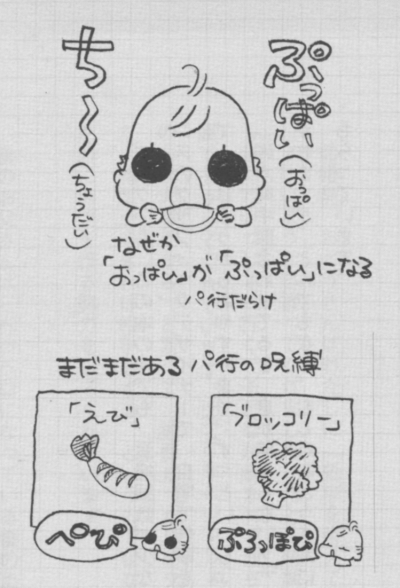 ぷっぱい
(おっぱい)
ち〜
(ちょうだい)
なぜか
「おっぱい」が「ぷっぱい」になる
パ行だらけ
まだまだある パ行の呪縛
「えび」
ぺぴ
「ブロッコリー」
ぷろっぽぴ